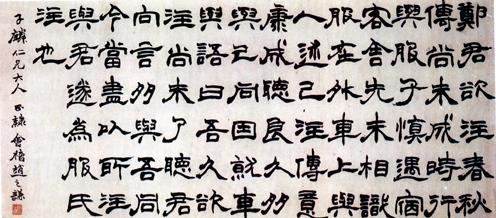 鄭君欲注春秋
傳尚未成時行
與服子慎遇宿
客舍先未相識
服在外車上與
人述己注傳意
康成聽良久多
與己同因就車
與語曰吾久欲
注尚未了聽君
向言多與吾同
今當盡以所注
與君遂為服氏
注也
子麟仁兄大人 正隸 會稽趙之謙